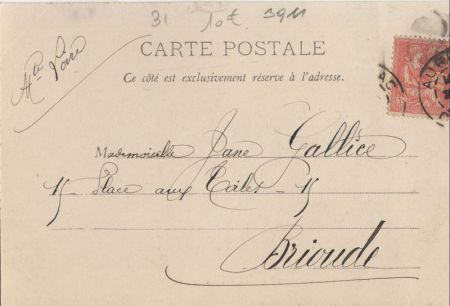 31 10€ 3911
Hte Loire
CARTE POSTALE
Ce côté est exclusivement réservé à l'adresse.
Mademoiselle Jane Gallice
15 - Place aux Toiles - 15
Brioude